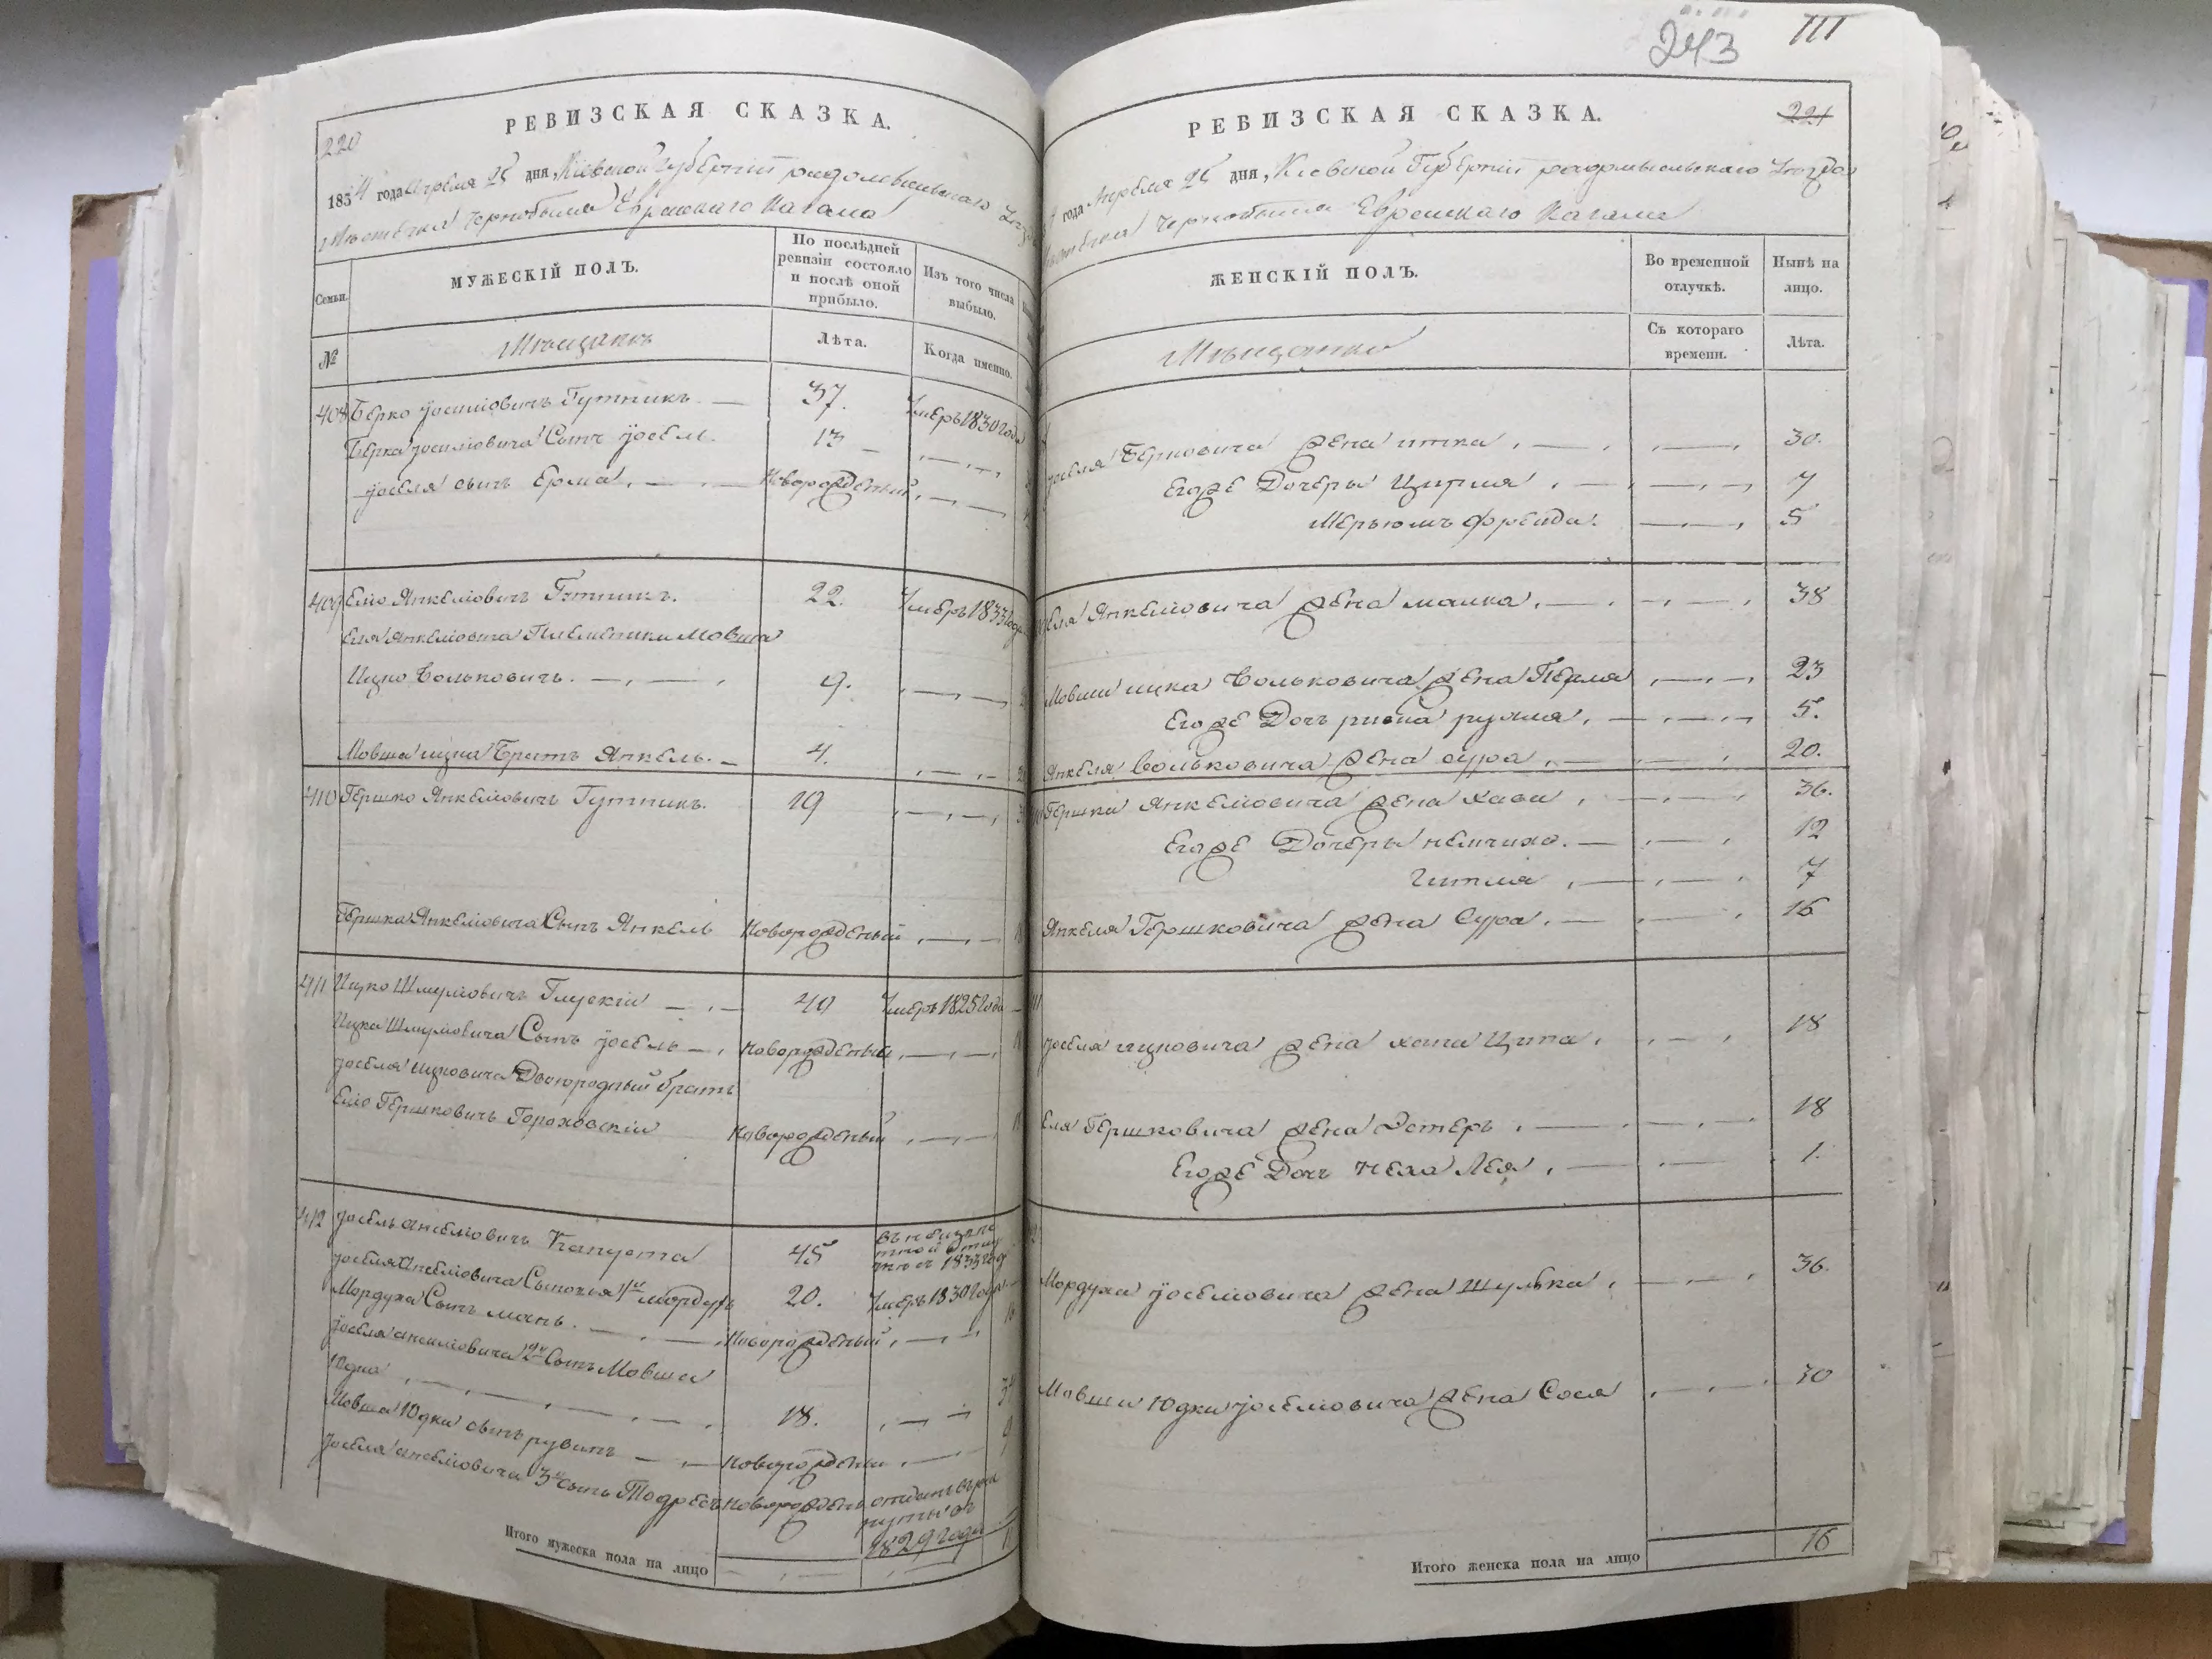 220
РЕВИЗСКАЯ СКАЗКА.
1834 года Апреля 25 дня, Кіевской Губерніи радомысльскаго
Мѣстечка Чернобыля Еврейскаго Кагала
Семьи.
МУЖЕСКІЙ ПОЛЪ.
По послѣдней ревизіи состояло и послѣ оной прибыло.
Изъ того числа выбыло.
№
Мѣщанъ
Лѣта.
Когда именно.
408 Берко Іосиліовичъ Гутникъ. 37. Умеръ 1830 года
Берка Іосиліовича Сынъ Іосель. 13
Іоселя сынъ Ерма, Новорожденый
409 Еліо Янкеліовичъ Гутникъ. 22. Умеръ 1833 года
Еля Янкеліовича Племеники Мовша
Ицко Вольковичъ. 9.
Мовша ицка Братъ Янкель. 4.
410 Гершко Янкеліовичъ Гутникъ. 19
Гершка Янкеліовича Сынъ Янкель Новорожденый
411 Ицко Шмуліовичъ Глускій 40 Умеръ 1825 года
Ицка Шмуліовича Сынъ Іосель Новорожденый
Іоселя ицковича Двоюродный братъ
Еліо Гершковичъ Гороховскій Новорожденый
412 Іосель Анселіовичъ Капуста 45 1833 год
Іоселя Анселіовича Сыновья 1й Мордухъ 20. Умеръ 1830 года
Мордуха Сынъ мань. Новорожденый
Іоселя ансиліовича 2й Сынъ Мовша
Юдка 18.
Мовша Юдки сынъ рувинъ Новорожденый
Іоселя анселіовича 3й сынъ Тодресъ новорожденъ отданъ въ рекруты въ
1829 года
Итого мужеска пола на лицо
243
III
221
РЕВИЗСКАЯ СКАЗКА.
года Апреля 25 дня, Кіевской Губерніи радомысльскаго Уѣзда
Мѣстечка Чернобыля Еврейскаго Кагала
ЖЕНСКІЙ ПОЛЪ.
Во временной отлучкѣ.
Нынѣ на лицо.
Мѣщанка
Съ котораго времени.
Лѣта.
Іоселя Берковича жена итка, 30.
Егоже Дочеры Цирля, 7
Мерьюмъ фрейда. 5
Еля Янкеліовича жена малка, 38
Мовши ицка Вольковича жена Перля 23
Егоже Дочъ ривка рухля, 5.
Янкеля Вольковича жена сура, 20.
Гершка Янкеліовича жена хава, 36.
Егоже Дочеры немчиха. 12
Гитля, 7
Янкеля Гершковича жена Сура, 16
Іоселя ицковича жена хаша Ципа, 18
Еля Гершковича жена Эстеръ, 18
Егоже Дочъ неха Лея, 1.
Мордуха Іоселіовича жена Шулька, 36.
Мовши Юдки Іоселіовича жена Сося 30
Итого женска пола на лицо 16